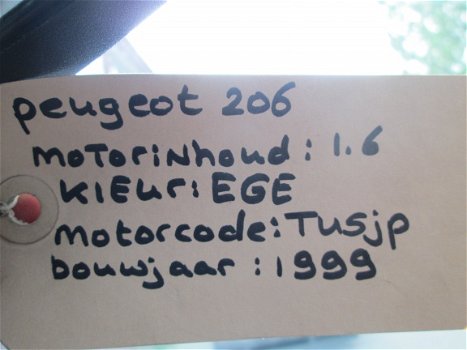 peugeot 206
motorinhoud: 1.6
kleur: EGE
motorcode: TUSjp
bouwjaar: 1999